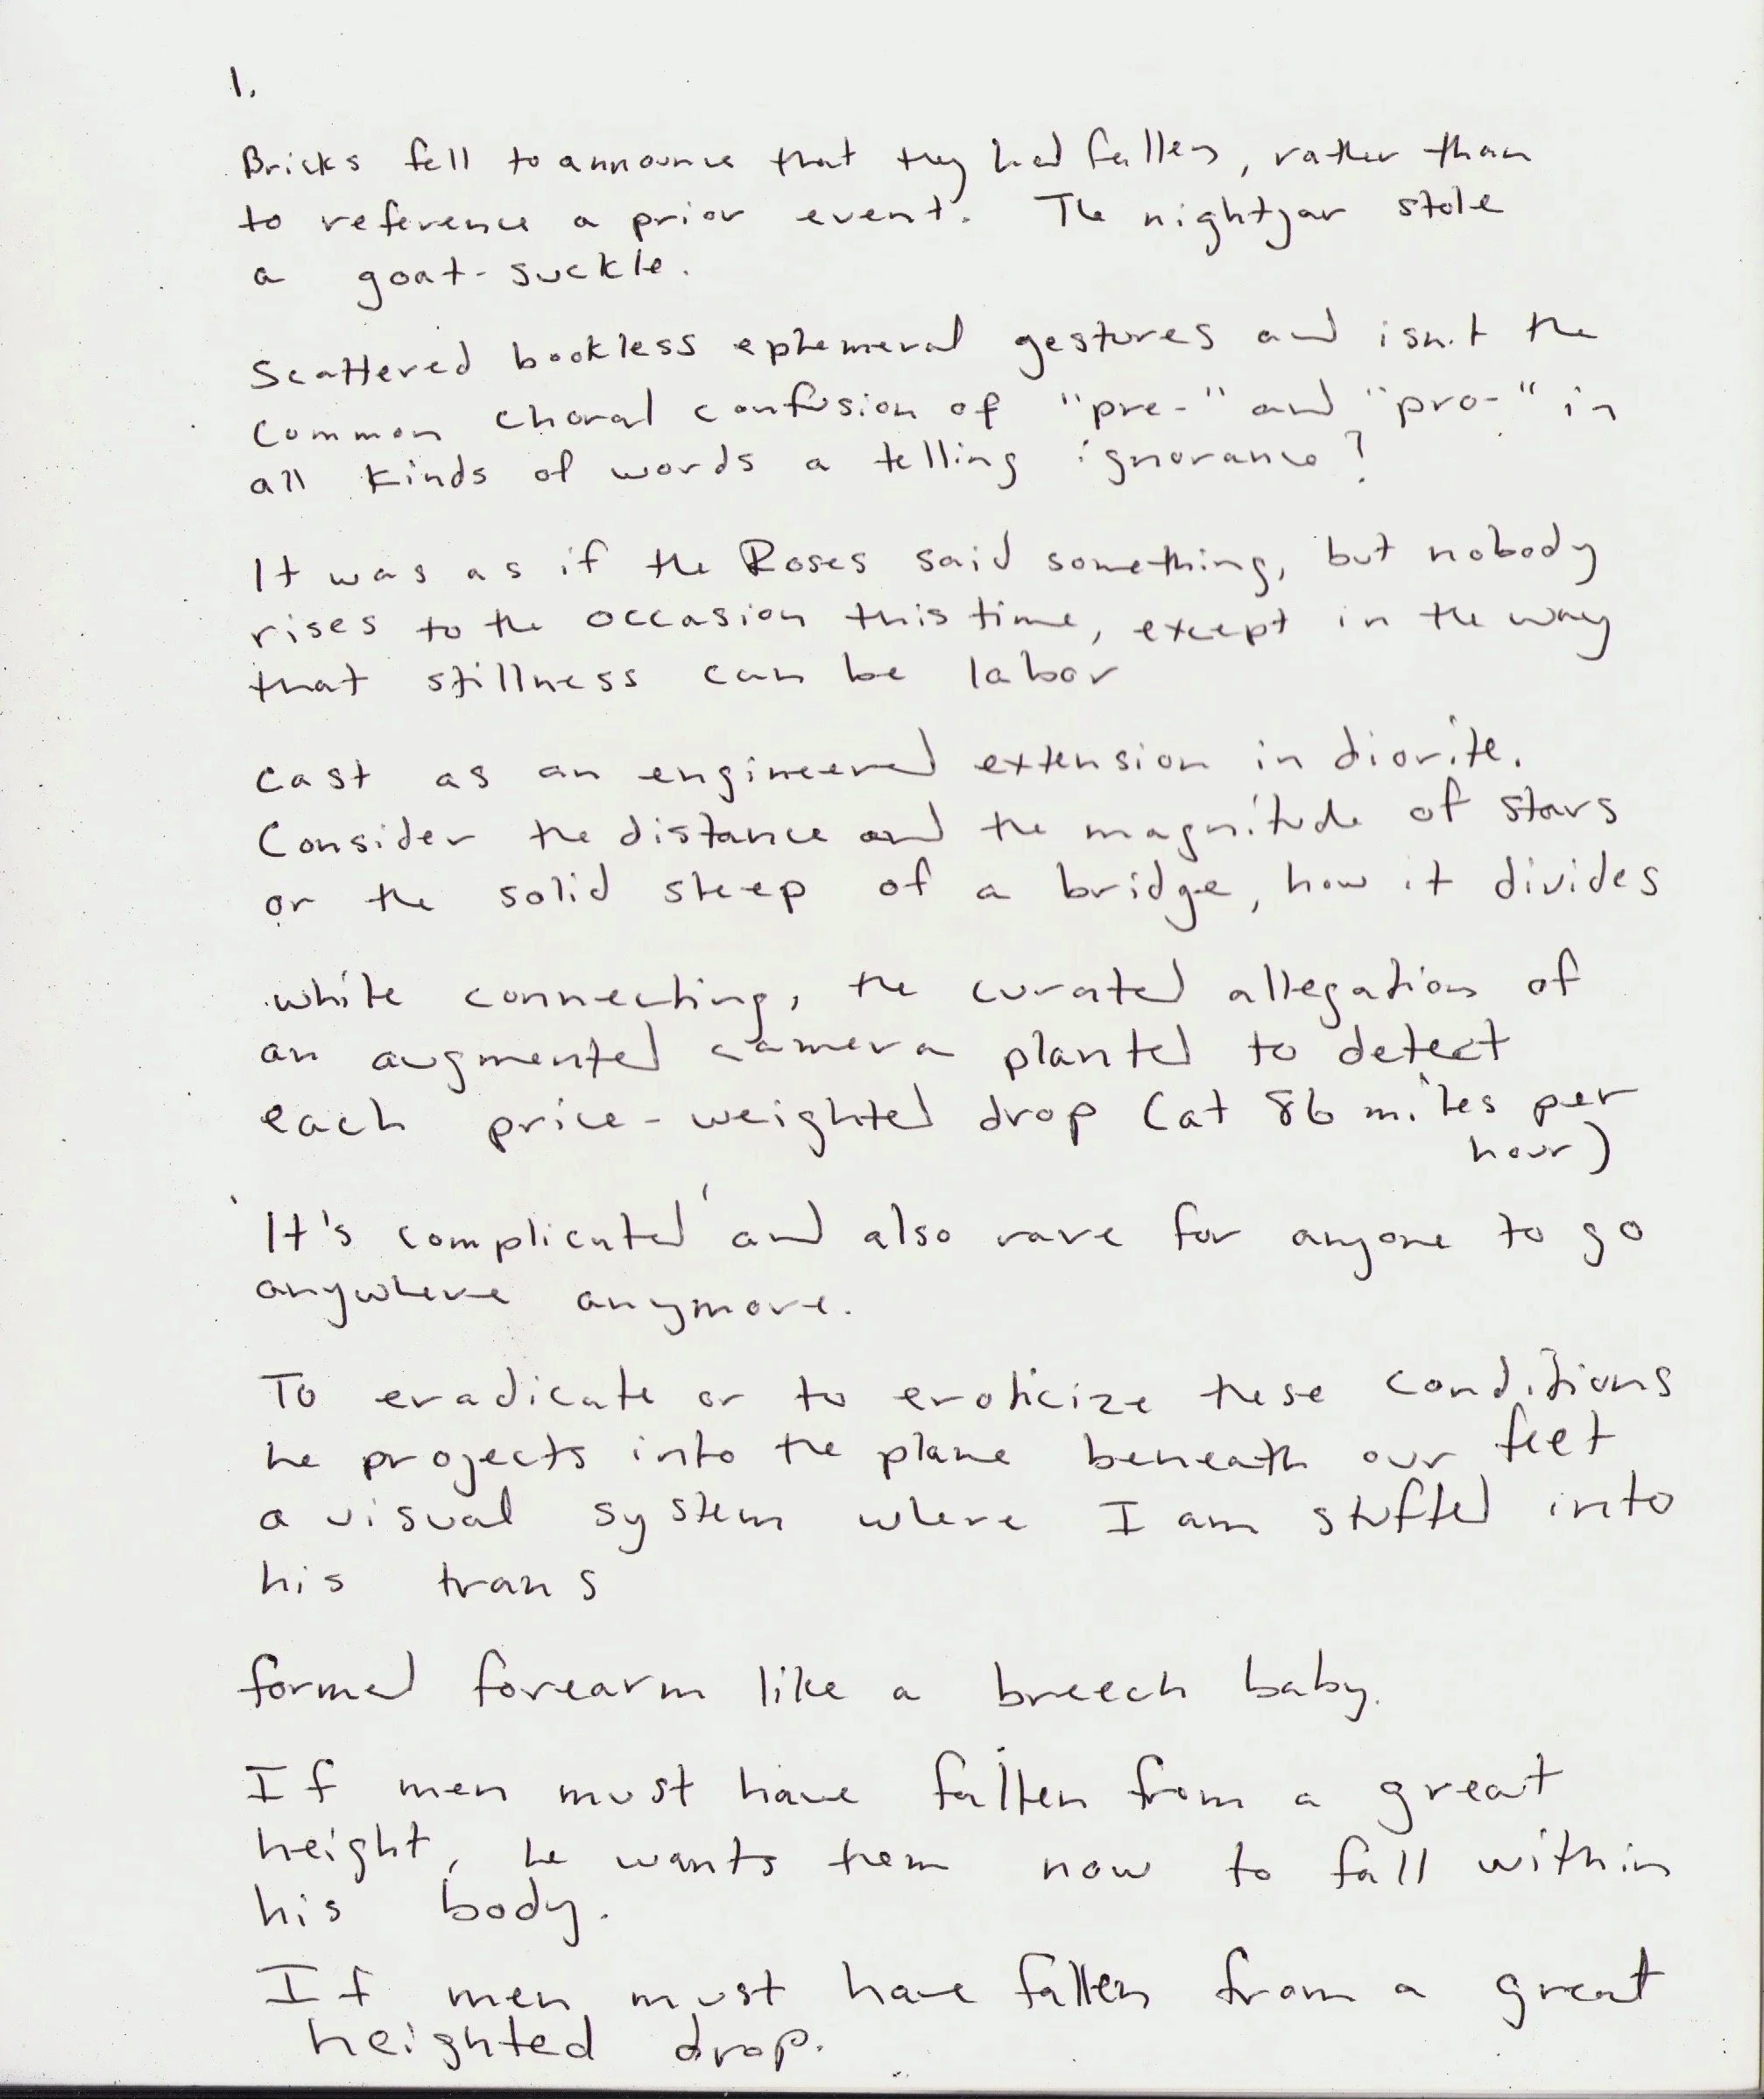 1.
Bricks fell to announce that they had fallen, rather than
to reference a prior event. The nightjar stole
a goat-suckle.
Scattered bookless ephemeral gestures and isn't the
common choral confusion of "pre-" and "pro-" in
all kinds of words a telling ignorance?
It was as if the Roses said something, but nobody
rises to the occasion this time, except in the way
that stillness can be labor
cast as an engineered extension in diorite.
Consider the distance and the magnitude of stars
or the solid steep of a bridge, how it divides
while connecting, the curated allegation of
an augmented camera planted to detect
each price-weighted drop (at 86 miles per
hour)
'It's complicated' and also rare for anyone to go
anywhere anymore.
To eradicate or to eroticize these conditions
he projects into the plane beneath our feet
a visual system where I am stuffed into
his trans
formed forearm like a breech baby.
If men must have fallen from a great
height, he wants them now to fall within
his body.
If men must have fallen from a great
heighted drop.